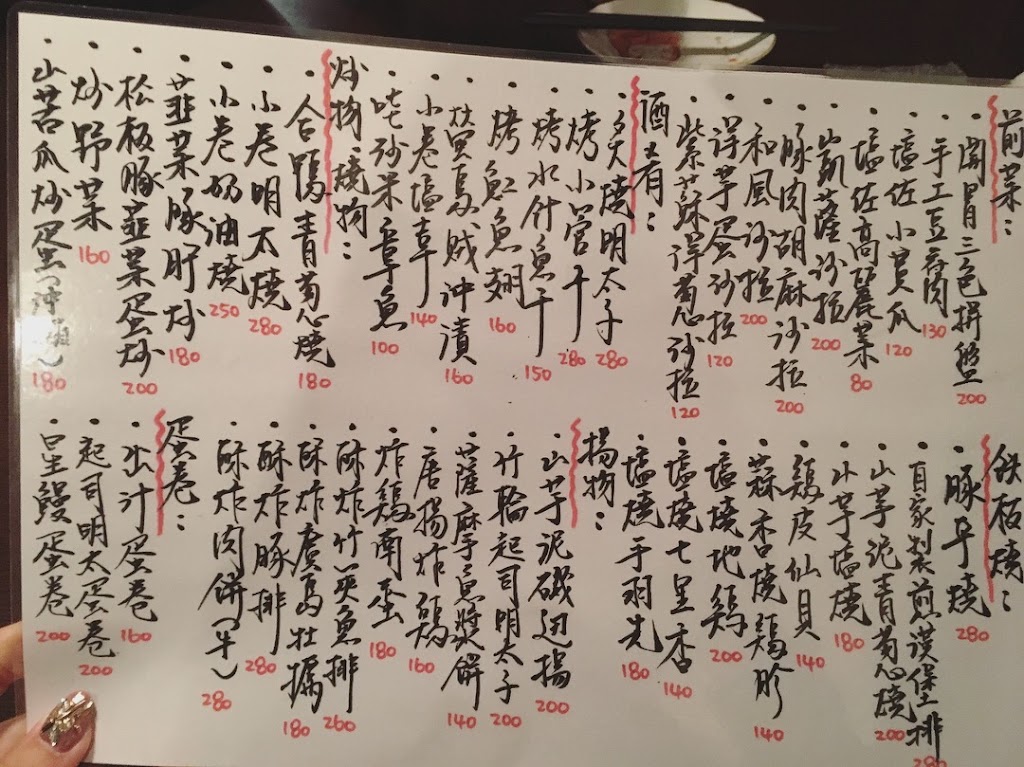 前菜：
・開胃三色拼盤 200
・手工豆腐 130
・塩佐小黃瓜 120
・塩佐高麗菜 80
・凱薩沙拉 200
・豚肉胡麻沙拉 200
・和風沙拉 200
・洋芋蛋沙拉 120
・紫蘇洋菊芯沙拉 120
酒肴：
・炙燒明太子 280
・烤小管干 280
・烤水什魚干 150
・烤魟魚翅 160
・烏賊沖漬 160
・小卷塩辛 140
・章魚 100
炒物、燒物：
・合鴨青菊芯燒 180
・小卷明太燒 280
・小卷奶油燒 250
・韮菜豚肝炒 180
・松板豚韮菜蛋炒 200
・炒野菜 160
・山苦瓜炒蛋(沖繩) 180
鉄板燒：
・豚平燒 280
・自家製煎漢堡排 280
・山芋泥青菊芯燒 200
・小芋塩燒 180
・鶏皮仙貝 140
・蒜香燒鶏胗 140
・塩燒地鶏 200
・塩燒七里香 140
・塩燒手羽先 180
揚物：
・山芋泥磯辺揚 200
・竹輪起司明太子 200
・薩摩魚漿餅 140
・唐揚炸鶏 160
・炸鶏南蛮 180
・酥炸竹筴魚排 260
・酥炸廣島牡蠣 180
・酥炸豚排 280
・酥炸肉餅(牛) 280
蛋卷：
・出汁蛋卷 160
・起司明太蛋卷 200
・星鰻蛋卷 200